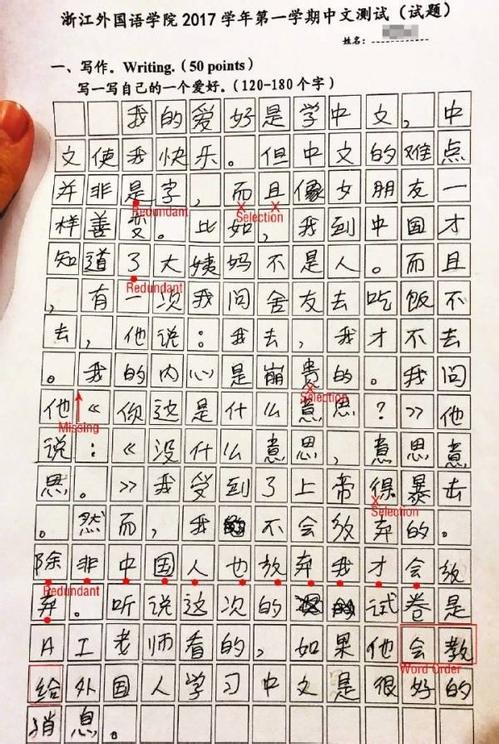 浙江外国语学院 2017 学年第一学期中文测试（试题）
姓名：
一、写作。Writing.（50 points）
写一写自己的一个爱好。（120-180 个字）
我的爱好是学中文，中
文使我快乐。但中文的难点
并非是字，而且像女朋友一
Redundant
Selection
样善变。比如，我到中国才
知道了大姨妈不是人。而且
Redundant
，有一次我问舍友去吃饭不
去，他说：我去，我才不去
。我的内心是崩贵的。我问
Selection
他《你这是什么意思？》他
Missing
说：《没什么意思，意思意
思。》我受到了上帝保暴击
Selection
。然而，我不会放弃的。
除非中国人也放弃我才会放
Redundant
弃。听说这次的试卷是
AI老师看的，如果他会教
Word Order
给外国人学习中文是很好的
消息。